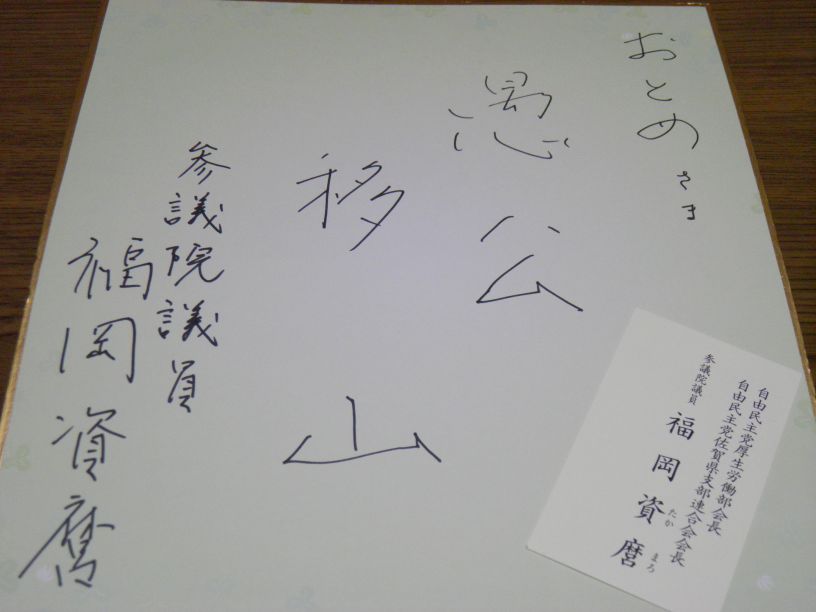 おとめさま
愚公
移山
参議院議員
福岡資麿
自由民主党厚生労働部会長
自由民主党佐賀県支部連合会会長
参議院議員
福岡資麿
たか まろ